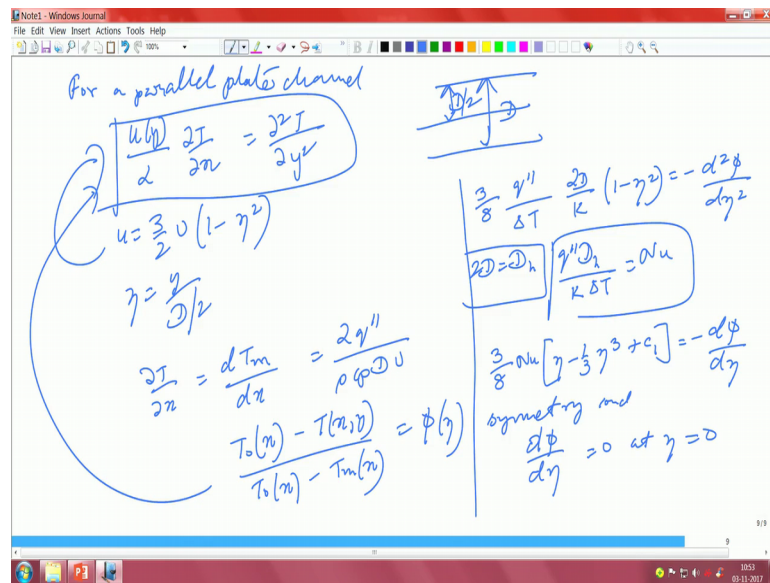 Note1 - Windows Journal
File Edit View Insert Actions Tools Help
100%
For a parallel plate channel
u(y)/α ∂T/∂x = ∂²T/∂y²
u = 3/2 U (1 - η²)
η = y/D/2
∂T/∂x = dTm/dx = 2q''/ρ cp D U
T₀(x) - T(x,y)/T₀(x) - Tm(x) = φ(η)
D/2 D
3/8 q''/ΔT 2D/K (1-η²) = - d²φ/dη²
2D = Dh q''Dh/K ΔT = Nu
3/8 Nu [η - 1/3 η³ + c₁] = - dφ/dη
symmetry and
dφ/dη = 0 at η = 0
9/9
9
10:53
03-11-2017